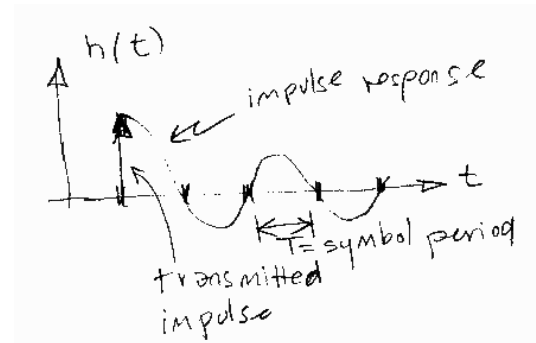 h(t)
impulse response
t
T= symbol period
transmitted
impulse